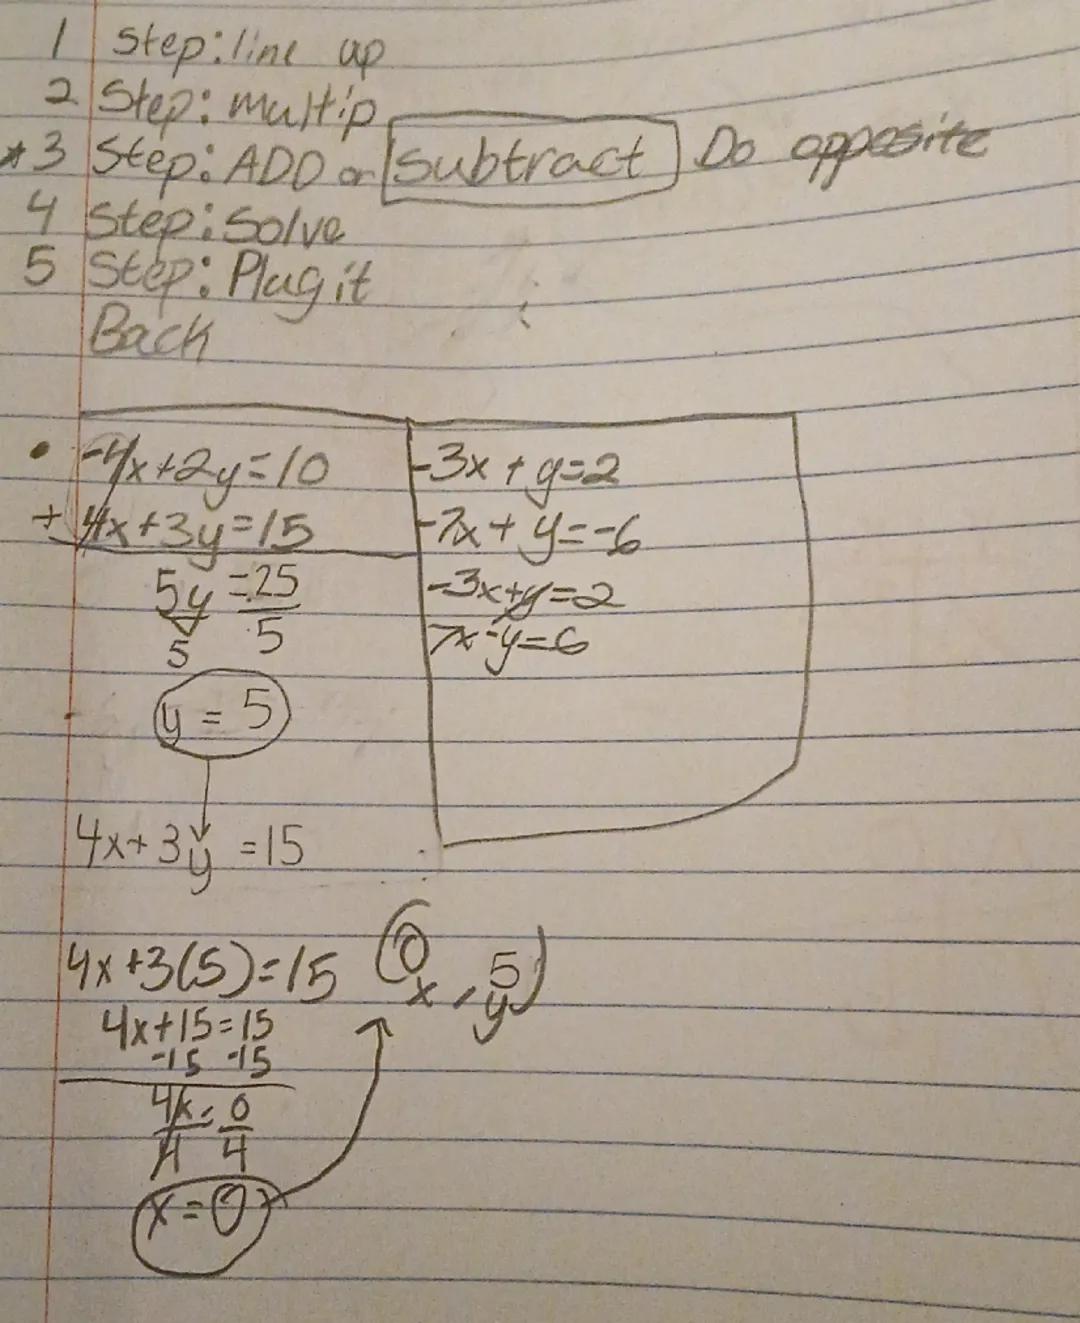 1 Step: line up
2 Step: multip
*3 Step: ADD or Subtract Do opposite
4 Step: Solve
5 Step: Plug it
Back
• -4x+2y=10
+ 4x+3y=15
5y = 25
5 5
y = 5
4x+3y =15
4x+3(5)=15
4x+15=15
-15 -15
4x = 0
4 4
x=0
(0, 5)
x y
-3x+y=2
-7x+y=-6
-3x+y=2
7x-y=6